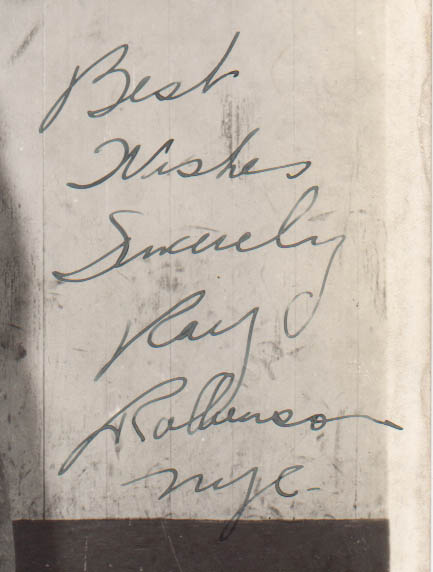 Best
Wishes
Sincerely
Ray
Robinson
NYC.